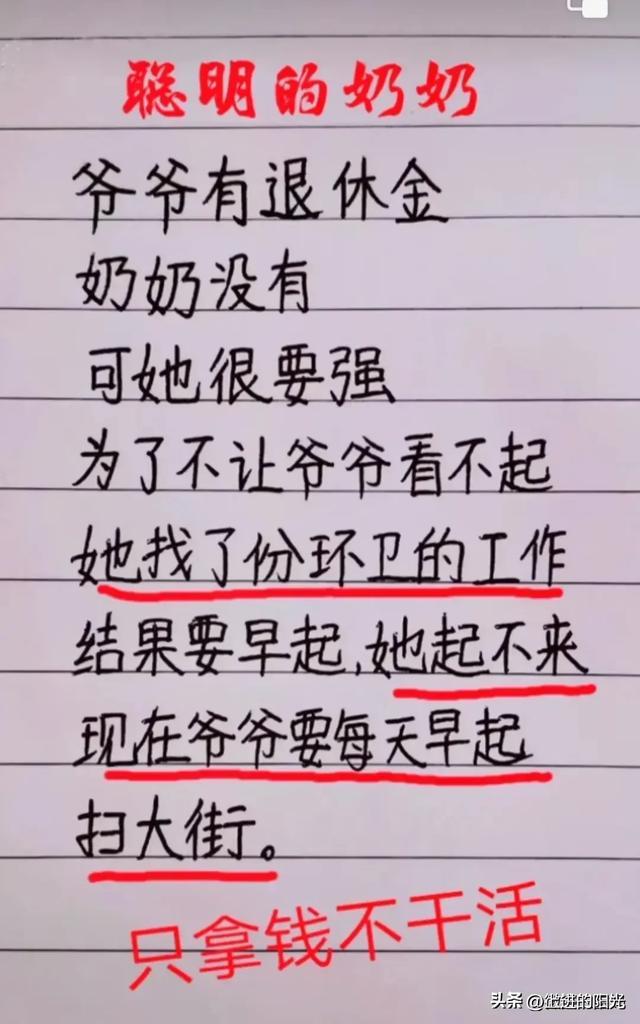 聪明的奶奶
爷爷有退休金
奶奶没有
可她很要强
为了不让爷爷看不起
她找了份环卫的工作
结果要早起,她起不来
现在爷爷要每天早起
扫大街。
只拿钱不干活
头条 @微进的阳光